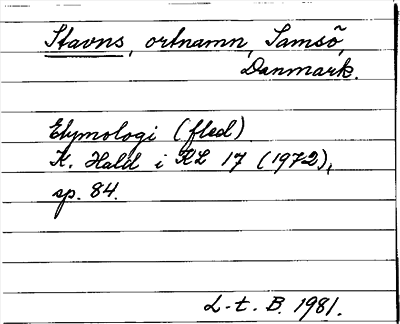 Stavns, ortnamn, Samsö,
Danmark.
Etymologi (fled)
K. Hald i KL 17 (1972),
sp. 84.
L-t. B. 1981.